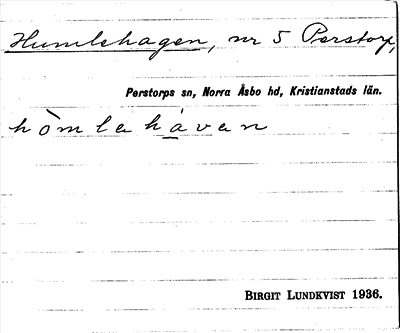 Humlehagen, nr 5 Perstorp,
Perstorps sn, Norra Åsbo hd, Kristianstads län.
hòmlehávan
BIRGIT LUNDKVIST 1936.